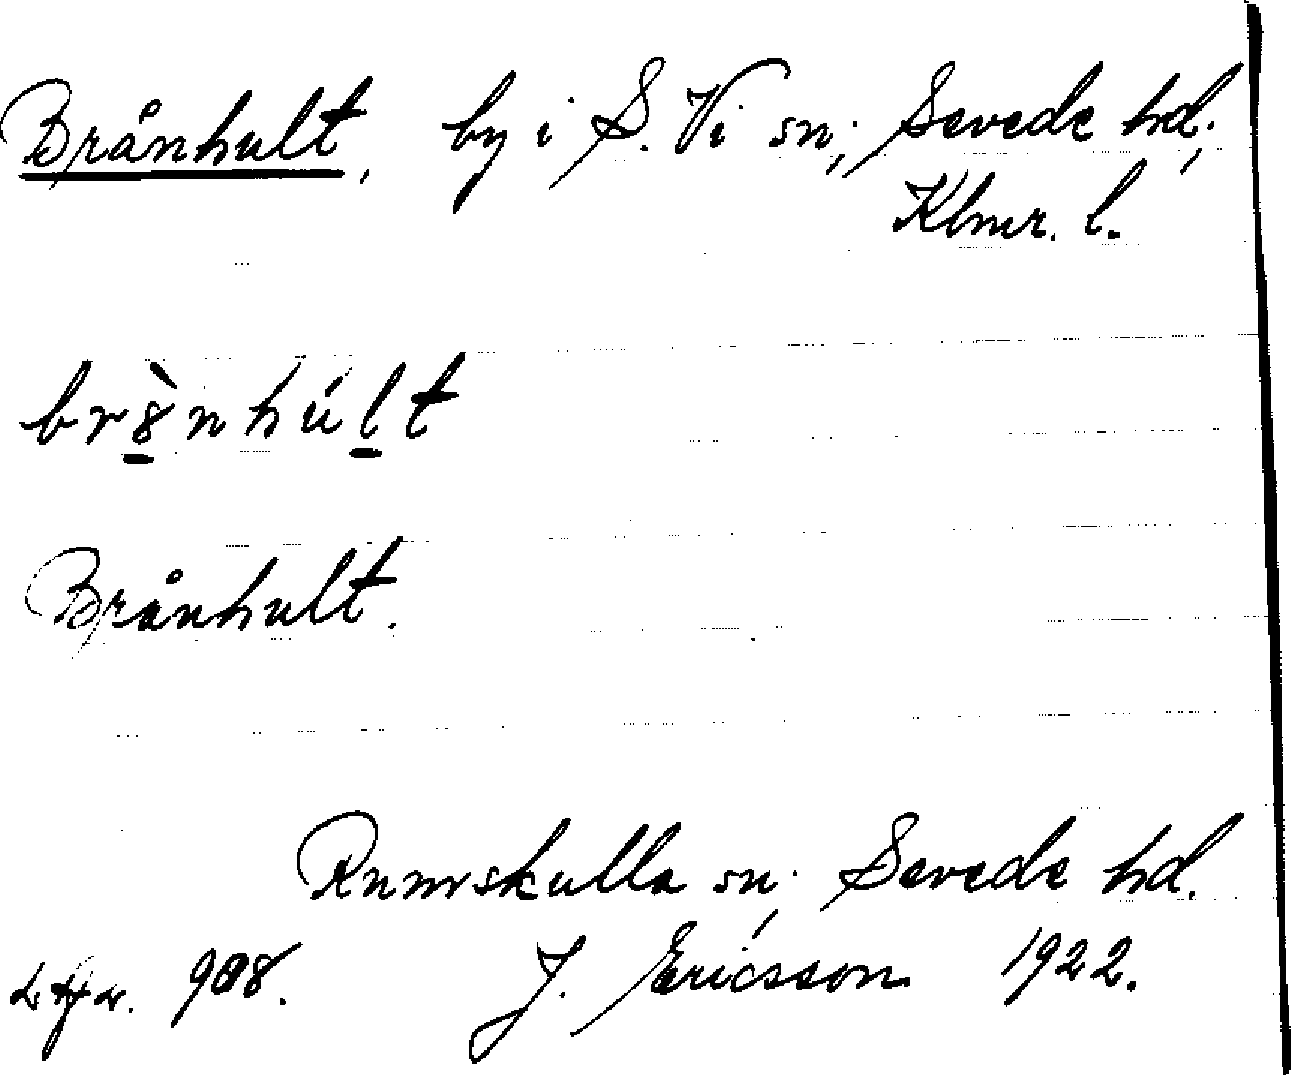 Brånhult, by i S. Vi sn., Sevede hd.,
Klmr. l.
br8̠̀nhúl̠t
Brånhult.
Rumskulla sn., Sevede hd.
908. J. Ericsson 1922.